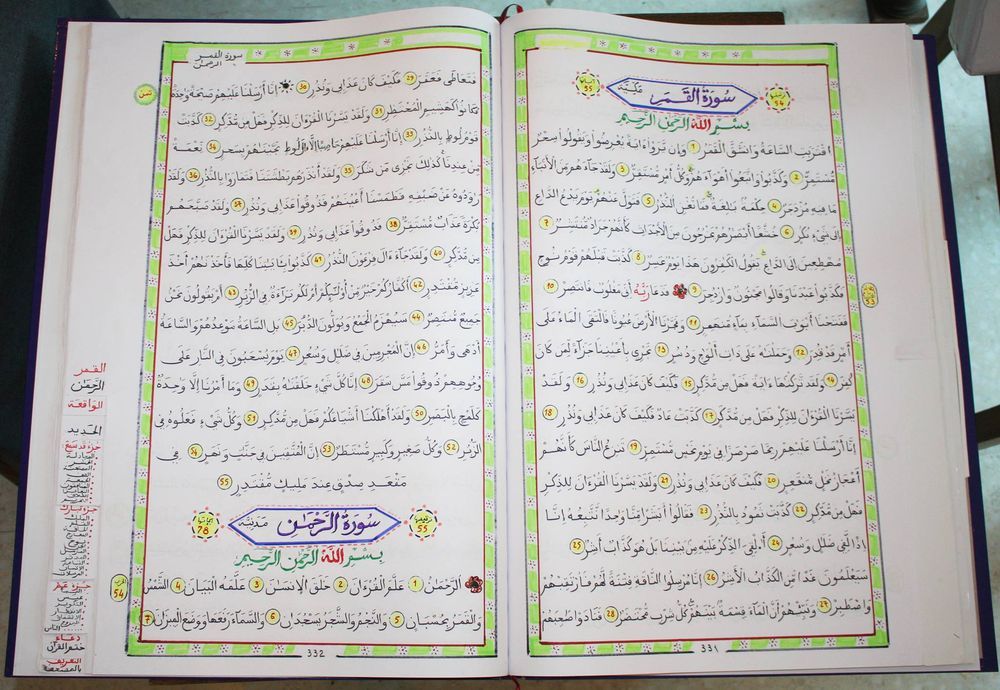 ترتيبها 54 سورة القمر مكية آياتها 55
بسم الله الرحمن الرحيم
اقتربت الساعة وانشق القمر 1 وإن يروا ءاية يعرضوا ويقولوا سحر
مستمر 2 وكذبوا واتبعوا أهواءهم وكل أمر مستقر 3 ولقد جاءهم من الأنباء
ما فيه مزدجر 4 حكمة بالغة فما تغن النذر 5 فتول عنهم يوم يدع الداع
إلى شيء نكر 6 خشعا أبصارهم يخرجون من الأجداث كأنهم جراد منتشر 7
مهطعين إلى الداع يقول الكفرون هذا يوم عسر 8 كذبت قبلهم قوم نوح
فكذبوا عبدنا وقالوا مجنون وازدجر 9 فدعا ربه أني مغلوب فانتصر 10
ففتحنا أبوب السماء بماء منهمر 11 وفجرنا الأرض عيونا فالتقى الماء على
أمر قد قدر 12 وحملنه على ذات ألوح ودسر 13 تجري بأعيننا جزاء لمن كان
كفر 14 ولقد تركنها ءاية فهل من مدكر 15 فكيف كان عذابي ونذر 16 ولقد
يسرنا القرءان للذكر فهل من مدكر 17 كذبت عاد فكيف كان عذابي ونذر 18
إنا أرسلنا عليهم ريحا صرصرا في يوم نحس مستمر 19 تنزع الناس كأنهم
أعجاز نخل منقعر 20 فكيف كان عذابي ونذر 21 ولقد يسرنا القرءان للذكر
فهل من مدكر 22 كذبت ثمود بالنذر 23 فقالوا أبشرا منا وحدا نتبعه إنا
إذا لفي ضلل وسعر 24 أءلقي الذكر عليه من بيننا بل هو كذاب أشر 25
سيعلمون غدا من الكذاب الأشر 26 إنا مرسلوا الناقة فتنة لهم فارتقبهم
واصطبر 27 ونبئهم أن الماء قسمة بينهم كل شرب محتضر 28 فنادوا صاحبهم
331
سورة القمر
الرحمن
فتعاطى فعقر 29 فكيف كان عذابي ونذر 30 إنا أرسلنا عليهم صيحة وحدة
فكانوا كهشيم المحتظر 31 ولقد يسرنا القرءان للذكر فهل من مدكر 32 كذبت
قوم لوط بالنذر 33 إنا أرسلنا عليهم حاصبا إلا ءال لوط نجينهم بسحر 34 نعمة
من عندنا كذلك نجزي من شكر 35 ولقد أنذرهم بطشتنا فتماروا بالنذر 36 ولقد
رودوه عن ضيفه فطمسنا أعينهم فذوقوا عذابي ونذر 37 ولقد صبحهم
بكرة عذاب مستقر 38 فذوقوا عذابي ونذر 39 ولقد يسرنا القرءان للذكر فهل
من مدكر 40 ولقد جاء ءال فرعون النذر 41 كذبوا بئايتنا كلها فأخذنهم أخذ
عزيز مقتدر 42 أكفاركم خير من أولئكم أم لكم براءة في الزبر 43 أم يقولون نحن
جميع منتصر 44 سيهزم الجمع ويولون الدبر 45 بل الساعة موعدهم والساعة
أدهى وأمر 46 إن المجرمين في ضلل وسعر 47 يوم يسحبون في النار على
وجوههم ذوقوا مس سقر 48 إنا كل شيء خلقنه بقدر 49 وما أمرنا إلا وحدة
كلمح بالبصر 50 ولقد أهلكنا أشياعكم فهل من مدكر 51 وكل شيء فعلوه في
الزبر 52 وكل صغير وكبير مستطر 53 إن المتقين في جنت ونهر 54 في
مقعد صدق عند مليك مقتدر 55
ترتيبها 55 سورة الرحمن مدنية آياتها 78
بسم الله الرحمن الرحيم
الرحمن 1 علم القرءان 2 خلق الإنسن 3 علمه البيان 4 الشمس
والقمر بحسبان 5 والنجم والشجر يسجدان 6 والسماء رفعها ووضع الميزان 7
332
ثمن
القمر
الرحمن
الواقعة
الحديد
جزء قد سمع
جزء تبارك
جزء عم
دعاء
ختم القرآن
التعريف